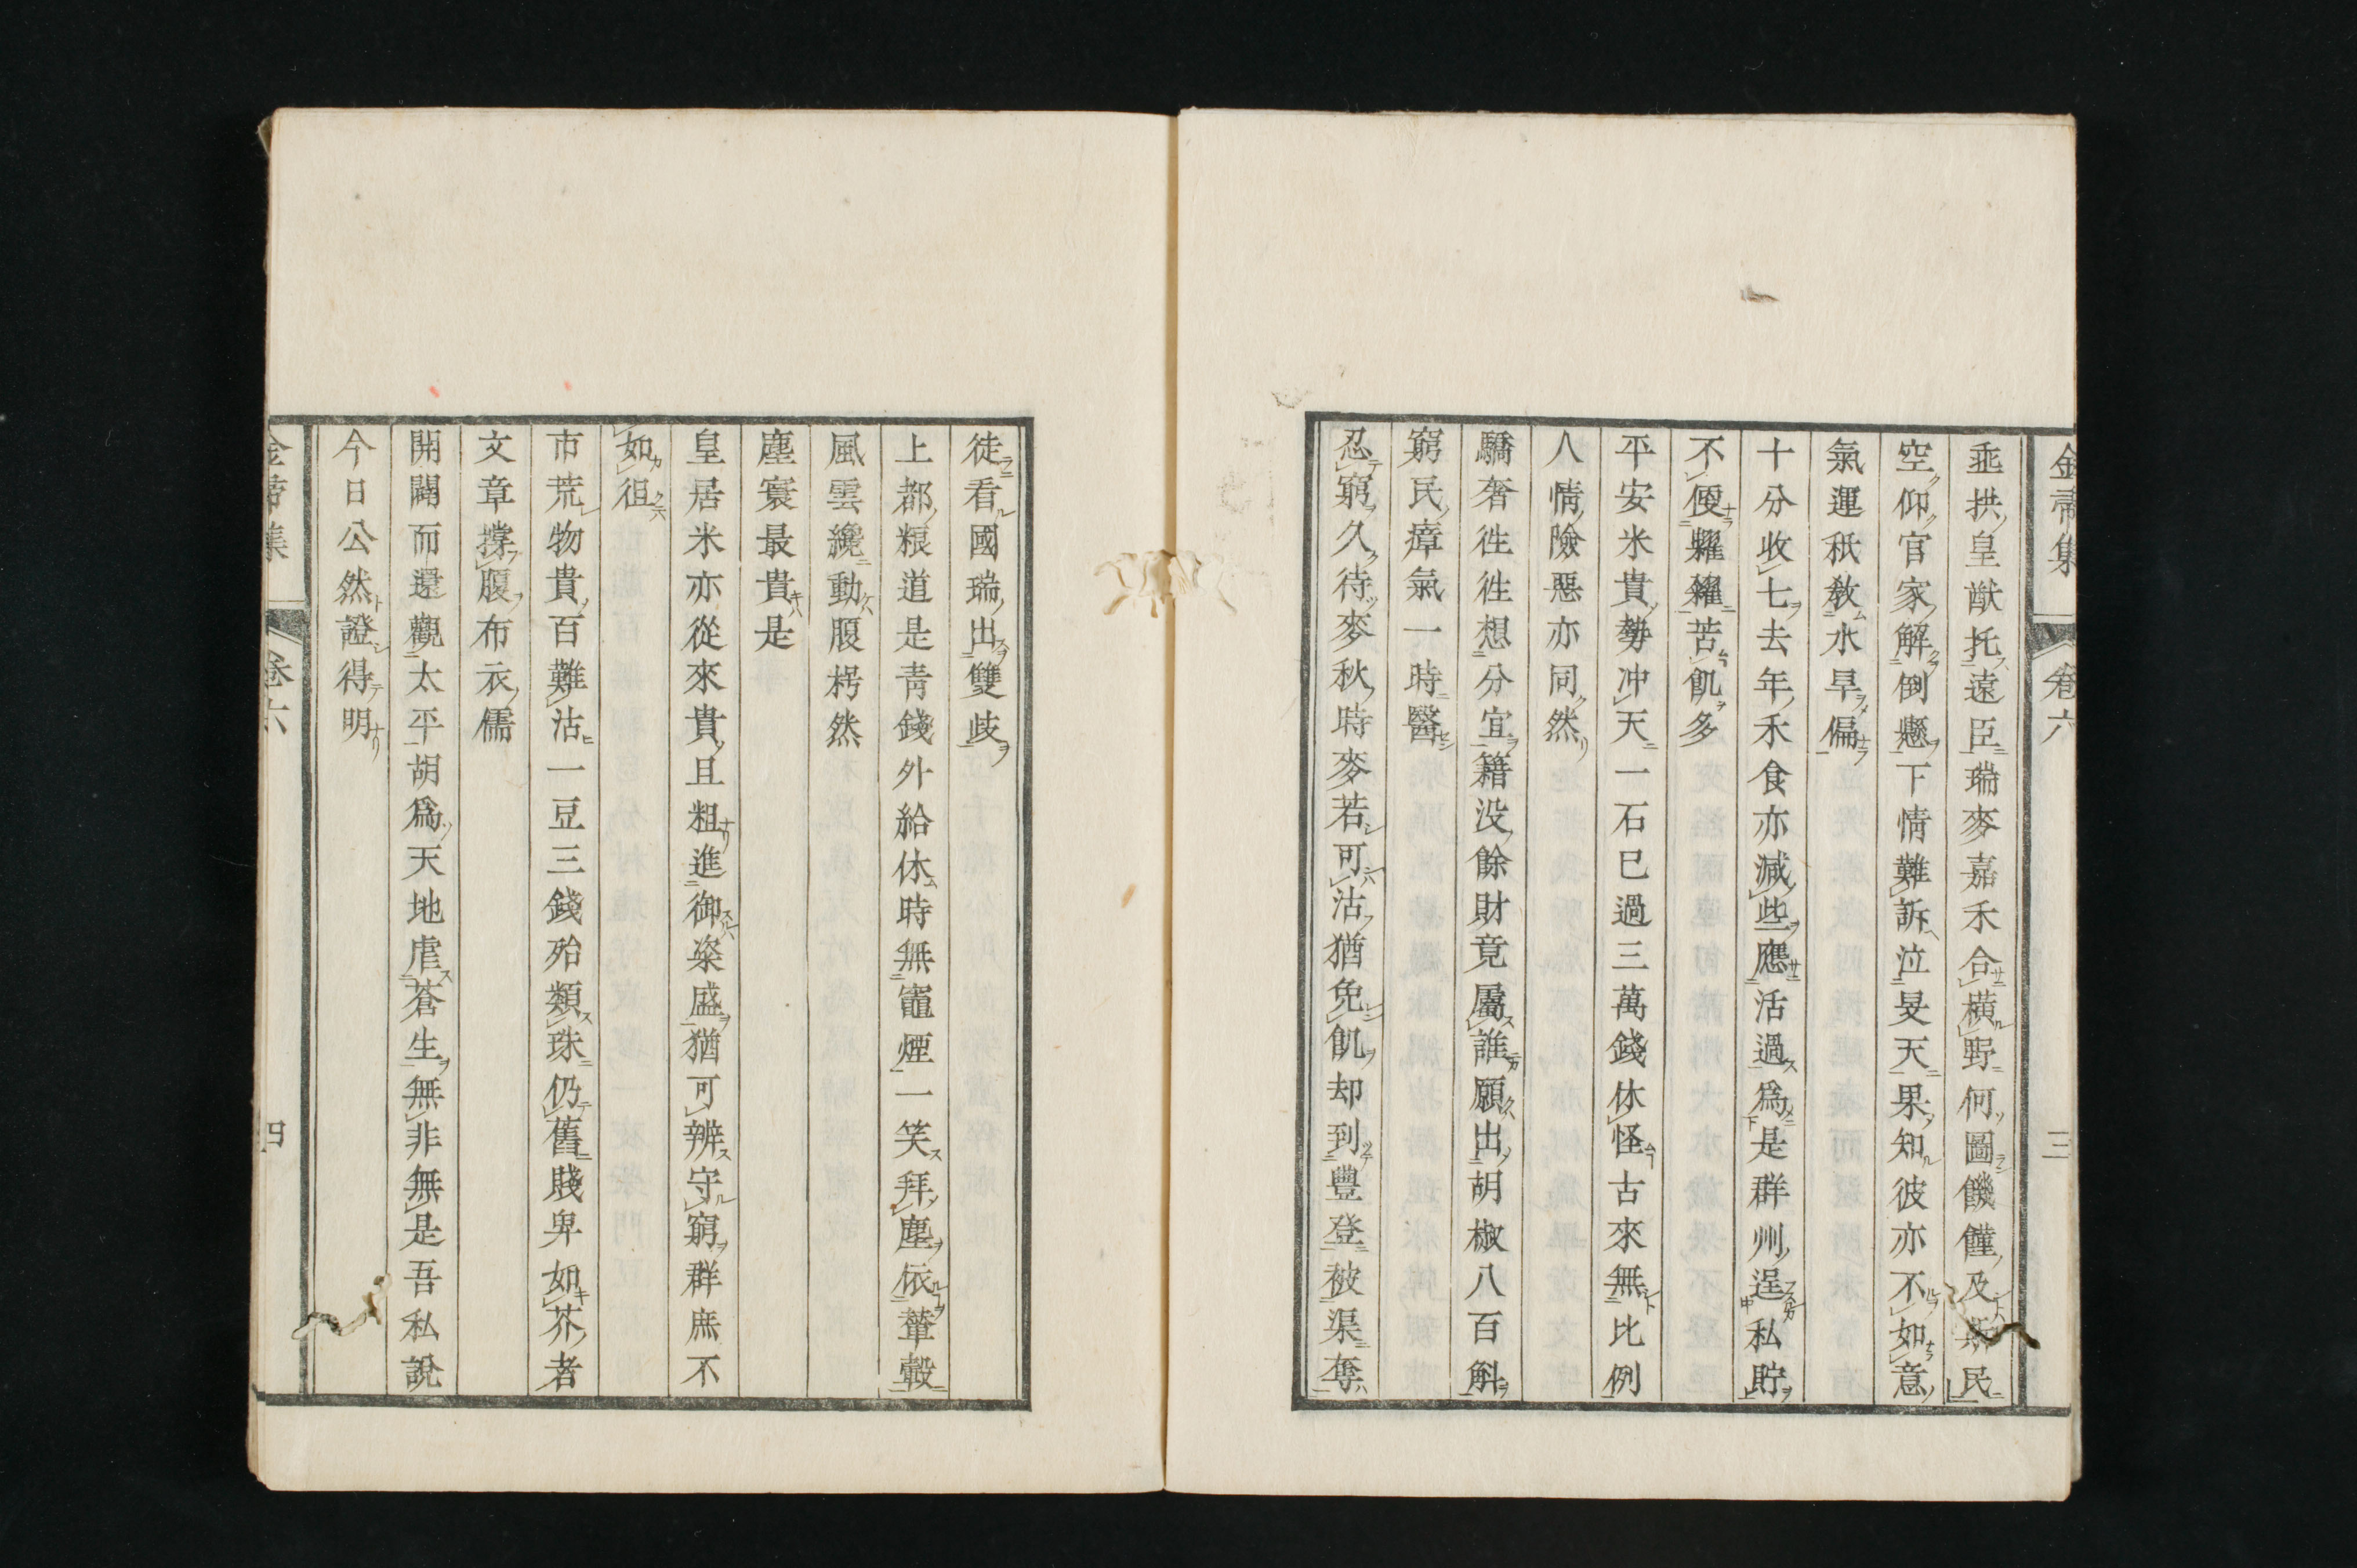 金帚集 卷六 三
乖拱皇猷托遠臣瑞麥嘉禾合橫野何圖饑饉及斯民
空仰官家解倒懸下情難訴泣旻天果知彼亦不如意
氣運秖敎水旱偏
十分收七去年禾食亦減些應活過爲是群州逞私貯
不便糶糴苦飢多
平安米貴勢冲天一石已過三萬錢休怪古來無比例
人情險惡亦同然
驕奢徃徃想分宜籍没餘財竟屬誰願出胡椒八百斛
窮民瘴氣一時醫
忍窮久待麥秋時麥若可沽猶免飢却到豐登被渠奪
徒看國瑞出雙歧
上都粮道是靑錢外給休時無竈煙一笑拜塵依輦轂
風雲纔動腹枵然
塵寰最貴是
皇居米亦從來貴且粗進御粢盛猶可辨守窮群庶不
如徂
市荒物貴百難沽一豆三錢殆類珠仍舊賤卑如芥者
文章撑腹布衣儒
開闢而還觀太平胡爲天地虐蒼生無非無是吾私說
今日公然證得明
卷六 四